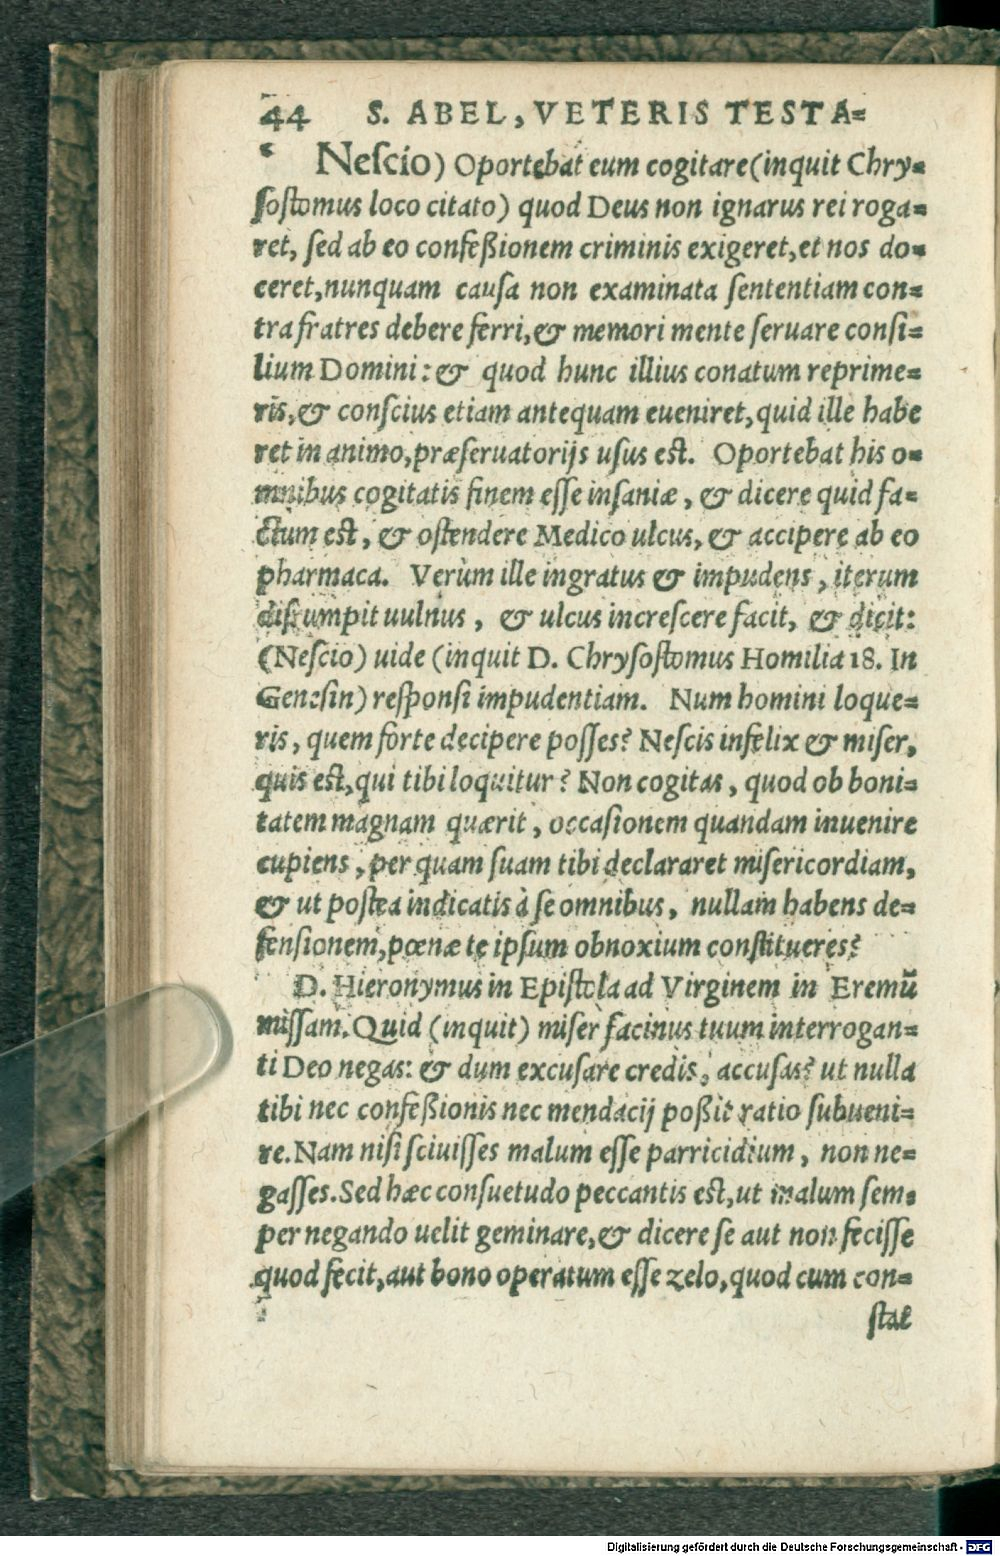 44 S. ABEL, VETERIS TESTA=
Nescio) Oportebat eum cogitare (inquit Chry=
sostomus loco citato) quod Deus non ignarus rei roga=
ret, sed ab eo confeßionem criminis exigeret, et nos do=
ceret, nunquam causa non examinata sententiam con=
tra fratres debere ferri, & memori mente seruare consi=
lium Domini: & quod hunc illius conatum reprime=
ris, & conscius etiam antequam eueniret, quid ille habe
ret in animo, præseruatorijs usus est. Oportebat his o=
mnibus cogitatis finem esse insaniæ, & dicere quid fa=
ctum est, & ostendere Medico ulcus, & accipere ab eo
pharmaca. Verùm ille ingratus & impudens, iterum
disrumpit uulnus, & ulcus increscere facit, & dicit:
(Nescio) uide (inquit D. Chrysostomus Homilia 18. In
Genesin) responsi impudentiam. Num homini loque=
ris, quem forte decipere posses? Nescis infelix & miser,
quis est, qui tibi loquitur? Non cogitas, quod ob boni=
tatem magnam quærit, occasionem quandam inuenire
cupiens, per quam suam tibi declararet misericordiam,
& ut postea indicatis à se omnibus, nullam habens de=
fensionem, pœnæ te ipsum obnoxium constitueres?
D. Hieronymus in Epistola ad Virginem in Eremũ
missam. Quid (inquit) miser facinus tuum interrogan=
ti Deo negas: & dum excusare credis, accusas? ut nulla
tibi nec confeßionis nec mendacij poßit ratio subueni=
re. Nam nisi sciuisses malum esse parricidium, non ne=
gasses. Sed hæc consuetudo peccantis est, ut malum sem=
per negando uelit geminare, & dicere se aut non fecisse
quod fecit, aut bono operatum esse zelo, quod cum con=
stat
Digitalisierung gefördert durch die Deutsche Forschungsgemeinschaft - DFG